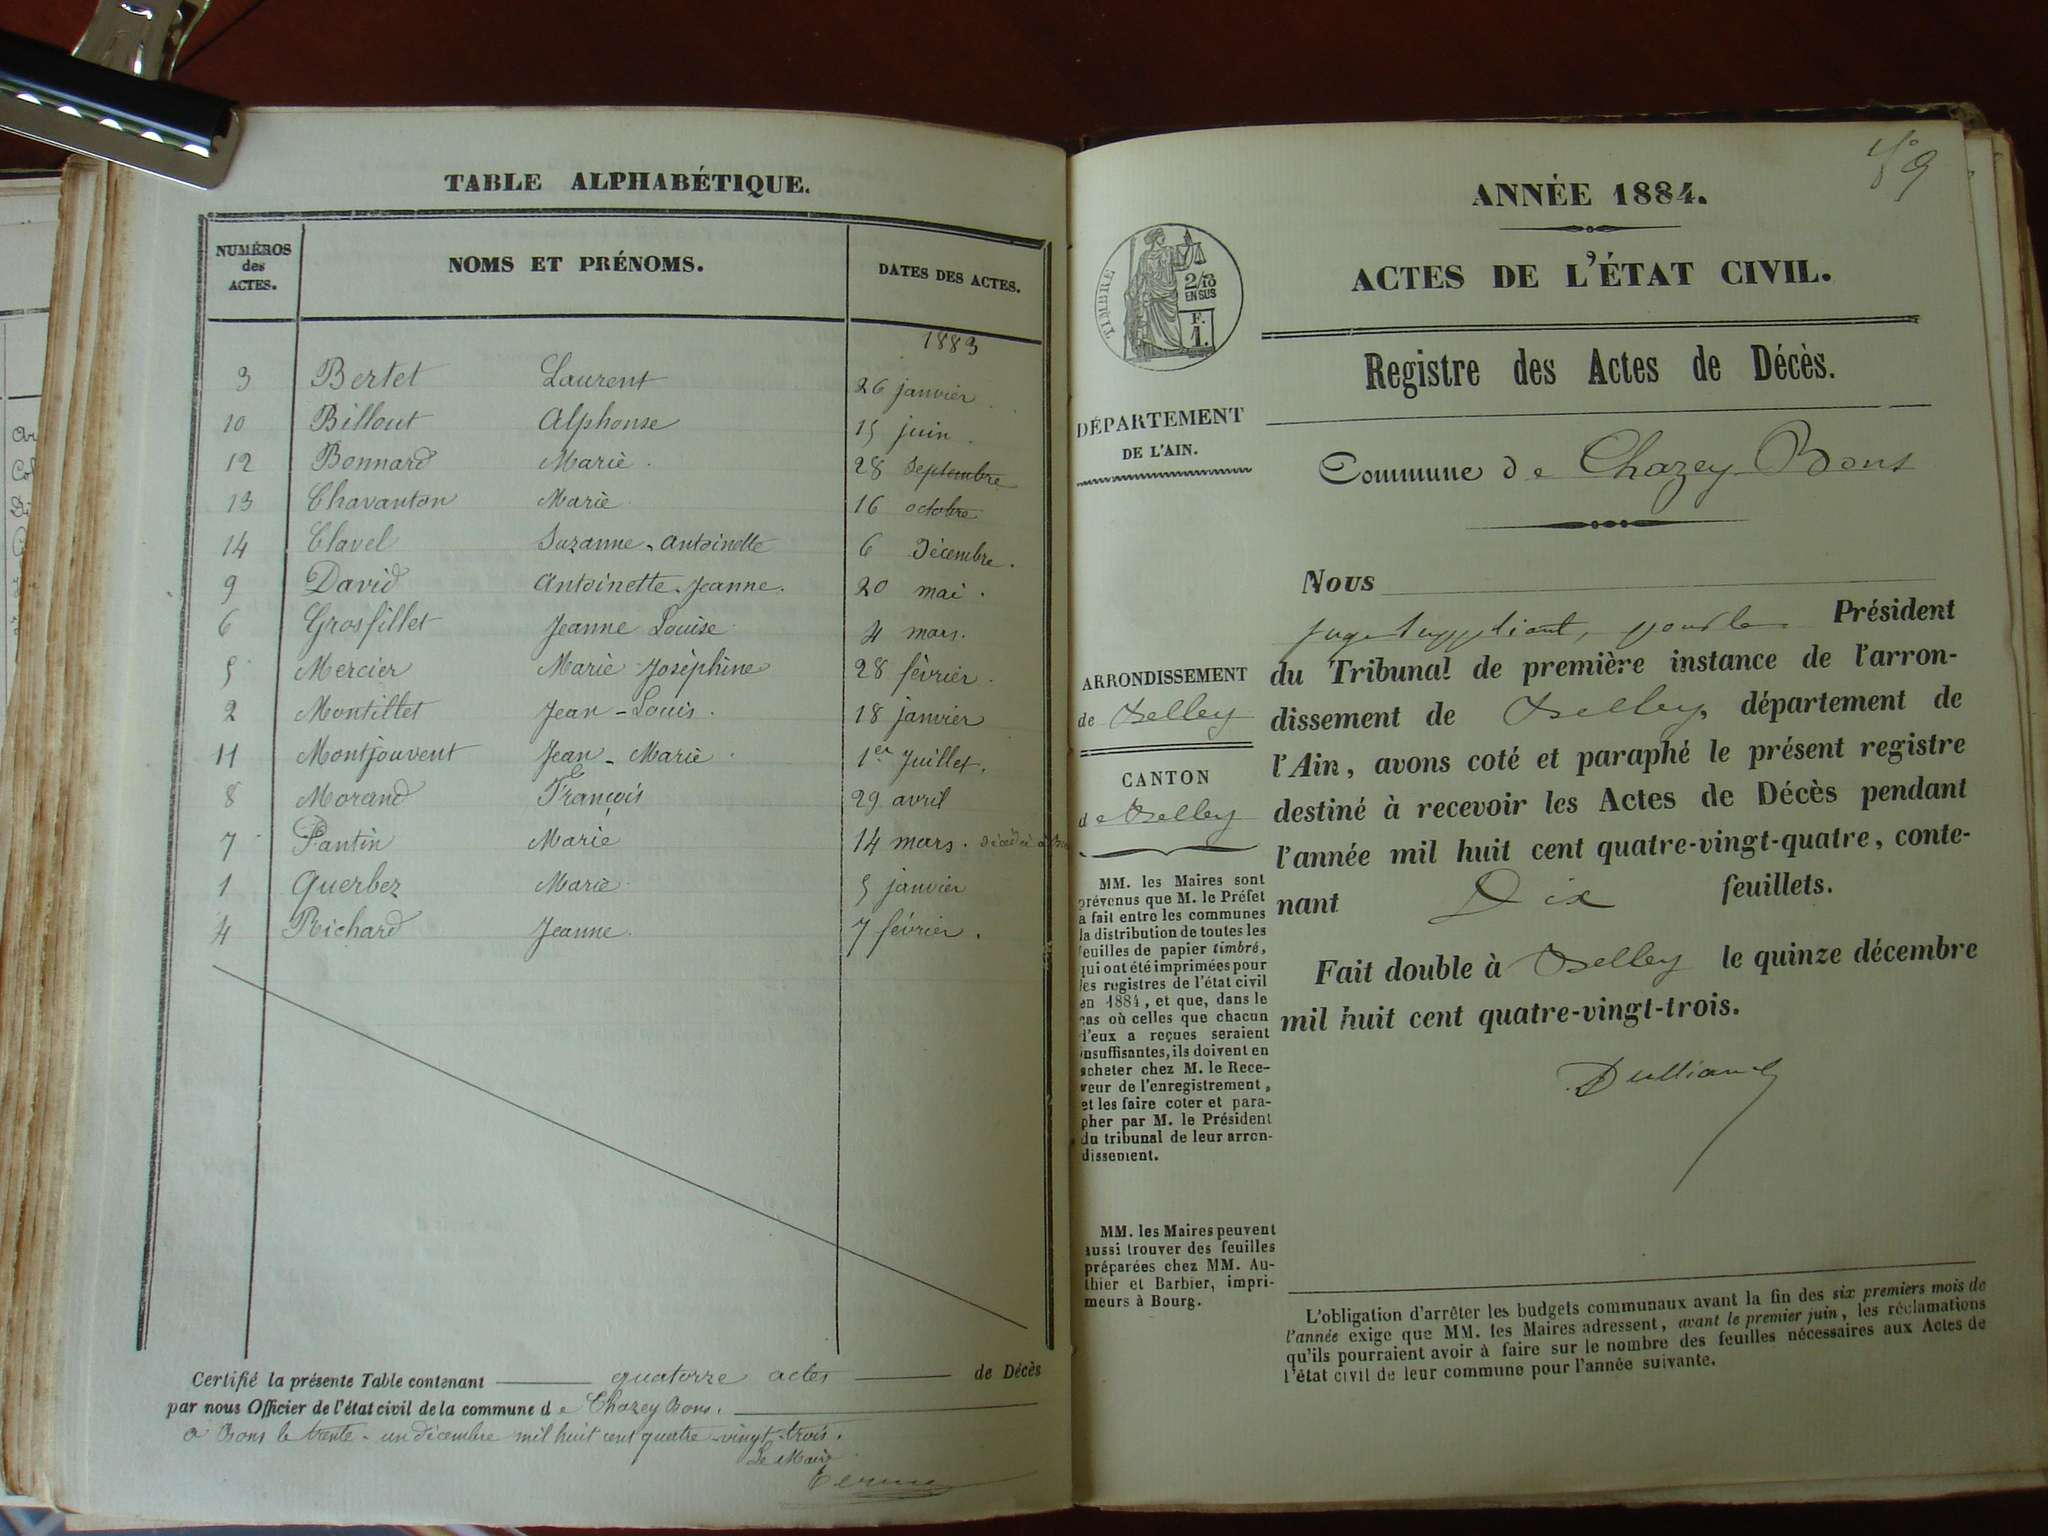 TABLE ALPHABÉTIQUE.
NUMÉROS des ACTES. NOMS ET PRÉNOMS. DATES DES ACTES.
1883
3 Bertet Laurent 26 janvier
10 Billout Alphonse 15 juin.
12 Bonnard Marie. 28 septembre
13 Chavanton Marie 16 octobre
14 Clavel Suzanne-Antoinette 6 Décembre.
9 David Antoinette-Jeanne. 20 mai.
6 Grosfillet Jeanne Louise 4 mars.
5 Mercier Marie Joséphine 28 février.
2 Montillet Jean-Louis. 18 janvier
11 Montjouvent Jean-Marie. 1er Juillet.
8 Morand François 29 avril
7 Pantin Marie 14 mars.
1 Querbez Marie 5 janvier
4 Richard Jeanne. 7 février.
Certifié la présente Table contenant quatorze actes de Décès
par nous Officier de l'état civil de la commune de Chazey Bons.
à Bons le trente-un décembre mil huit cent quatre-vingt-trois.
Le Maire
9
ANNÉE 1884.
ACTES DE L'ÉTAT CIVIL.
TIMBRE
2/10
EN SUS
F.
1.
Registre des Actes de Décès.
DÉPARTEMENT
DE L'AIN.
Commune de Chazey-Bons
ARRONDISSEMENT
de Belley
CANTON
de Belley
MM. les Maires sont
prévenus que M. le Préfet
a fait entre les communes
la distribution de toutes les
feuilles de papier timbré,
qui ont été imprimées pour
les registres de l'état civil
en 1884, et que, dans le
cas où celles que chacun
d'eux a reçues seraient
insuffisantes, ils doivent en
acheter chez M. le Rece-
veur de l'enregistrement,
et les faire coter et para-
pher par M. le Président
du tribunal de leur arron-
dissement.
MM. les Maires peuvent
aussi trouver des feuilles
préparées chez MM. Au-
thier et Barbier, impri-
meurs à Bourg.
Nous
juge suppléant, pour le Président
du Tribunal de première instance de l'arron-
dissement de Belley, département de
l'Ain, avons coté et paraphé le présent registre
destiné à recevoir les Actes de Décès pendant
l'année mil huit cent quatre-vingt-quatre, conte-
nant Dix feuillets.
Fait double à Belley le quinze décembre
mil huit cent quatre-vingt-trois.
L'obligation d'arrêter les budgets communaux avant la fin des six premiers mois de
l'année exige que MM. les Maires adressent, avant le premier juin, les réclamations
qu'ils pourraient avoir à faire sur le nombre des feuilles nécessaires aux Actes de
l'état civil de leur commune pour l'année suivante.